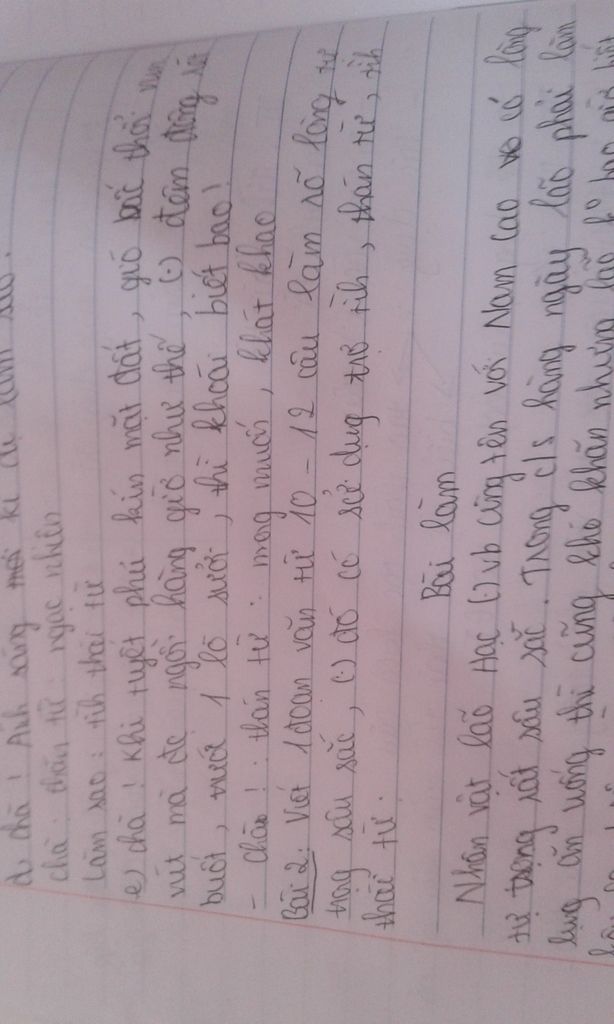 d. chà! Ánh sáng mới kì dị làm sao.
chà: thán từ: ngạc nhiên
làm sao: tìh thái từ
e) chà! Khi tuyết phủ kín mặt đất, gió bấc thổi vun
vút mà đc ngồi hàng giờ như thế, (-) đêm đông rét
buốt, trước 1 lò sưởi, thì khoái biết bao!
- chào!: thán từ: mong muốn, khát khao
Bài 2: Viết 1 đoạn văn từ 10 - 12 câu làm rõ lòng tự
trọg sâu sắc, (-) đó có sử dụg trợ từh, thán từ, tìh
thái từ.
Bài làm
Nhân vật lão Hạc (-) vb cùng tên với Nam Cao có lòng
tự trọng rất sâu sắc. Trong c/s hàng ngày lão phải làm
lụg ăn uống thì cũng khó khăn nhưng lão k° bao giờ